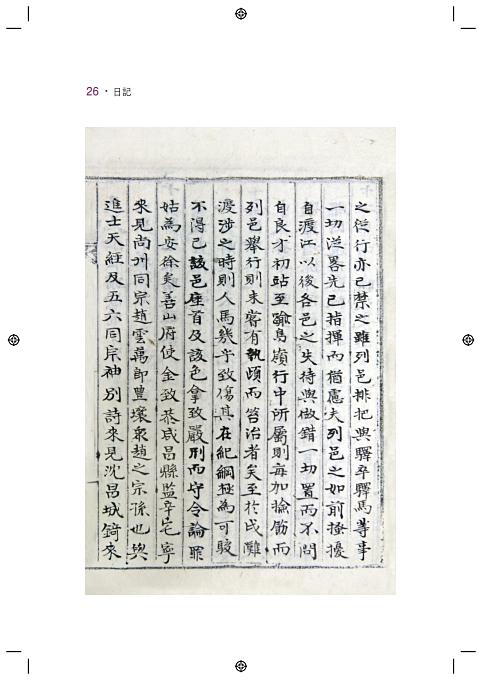 26 · 日記
之從行亦已禁之雖列邑排把與驛卒驛馬等事
一切從畧先已指揮而猶慮夫列邑之如前搔擾
自渡江以後各邑之失待與做錯一切置而不問
自良才初站至踰鳥嶺行中所屬則每加撿飭而
列邑舉行則未嘗有執頉而笞治者矣至於咸灘
渡涉之時則人馬幾乎致傷其在紀綱極爲可駭
不得已該邑座首及該色拿致嚴刑而守令論罪
姑爲安徐矣善山府使金致恭咸昌縣監辛宅寧
來見尚州同宗趙雲萬即豊壤泉趙之宗孫也與
進士天經及五六同宗袖別詩來見沈昌城錡來